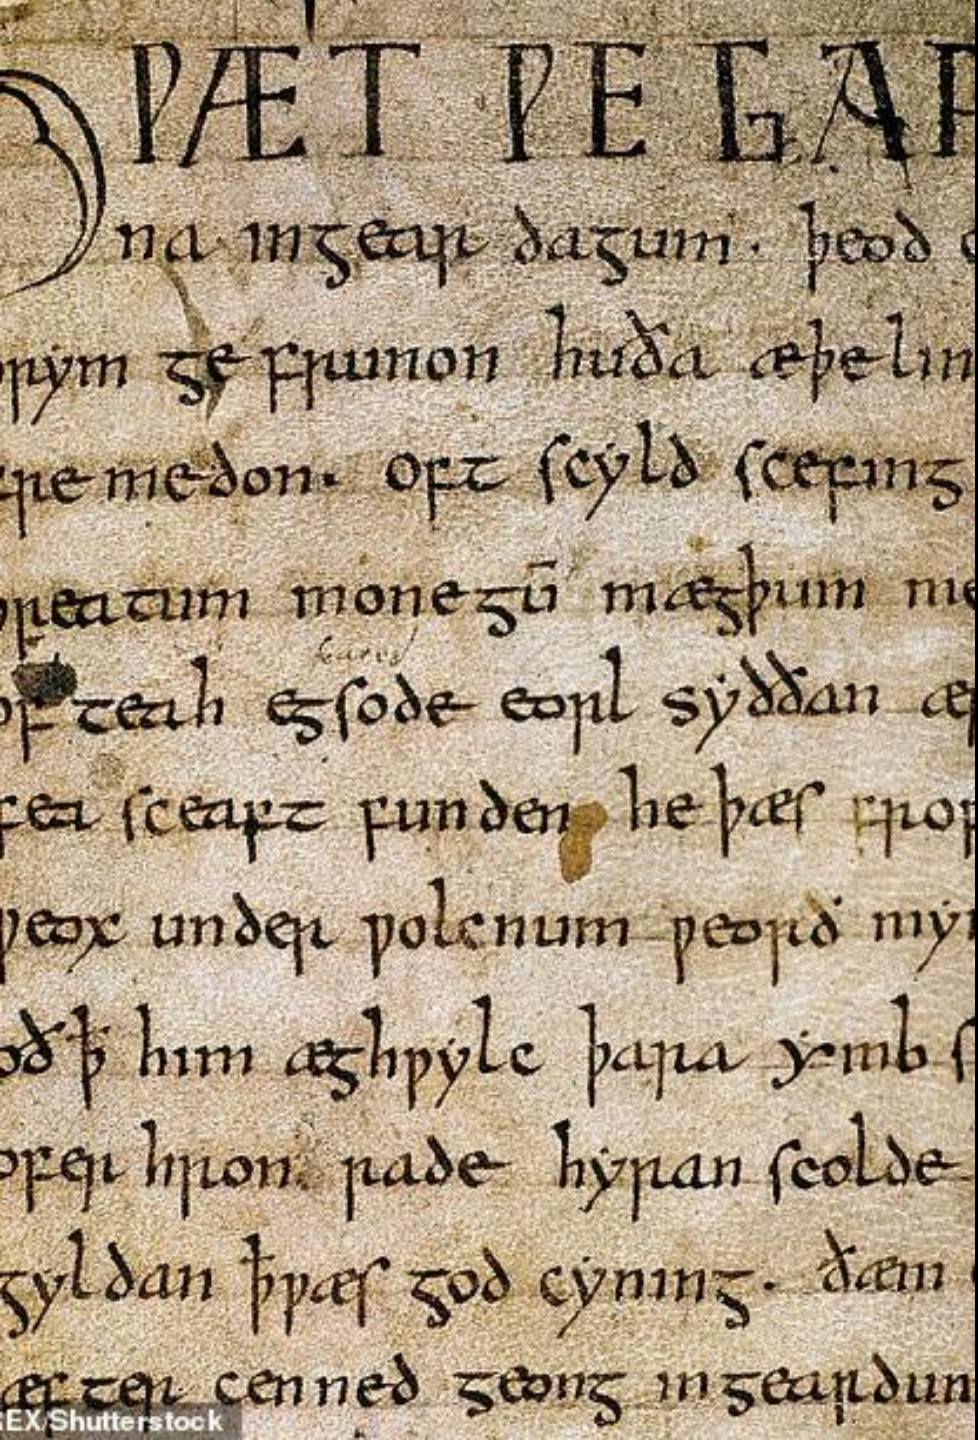 HǷÆT ǷE GAR
na ingear dagum. þeod c
rym ge frunon huða æþelin
re medon. oft scyld scefing
reatum monegū mægþum me
of teah egsode eorl syððan ær
fea sceaft funden he þæs frof
ƿeox under ƿolcnum ƿeorð myn
oð ꝥ him æghƿylc þara ymb s
ofer hron rade hyran scolde
gyldan ꝥ ƿæs god cyning. ðæm
æfter cenned geong in geardum
REX/Shutterstock